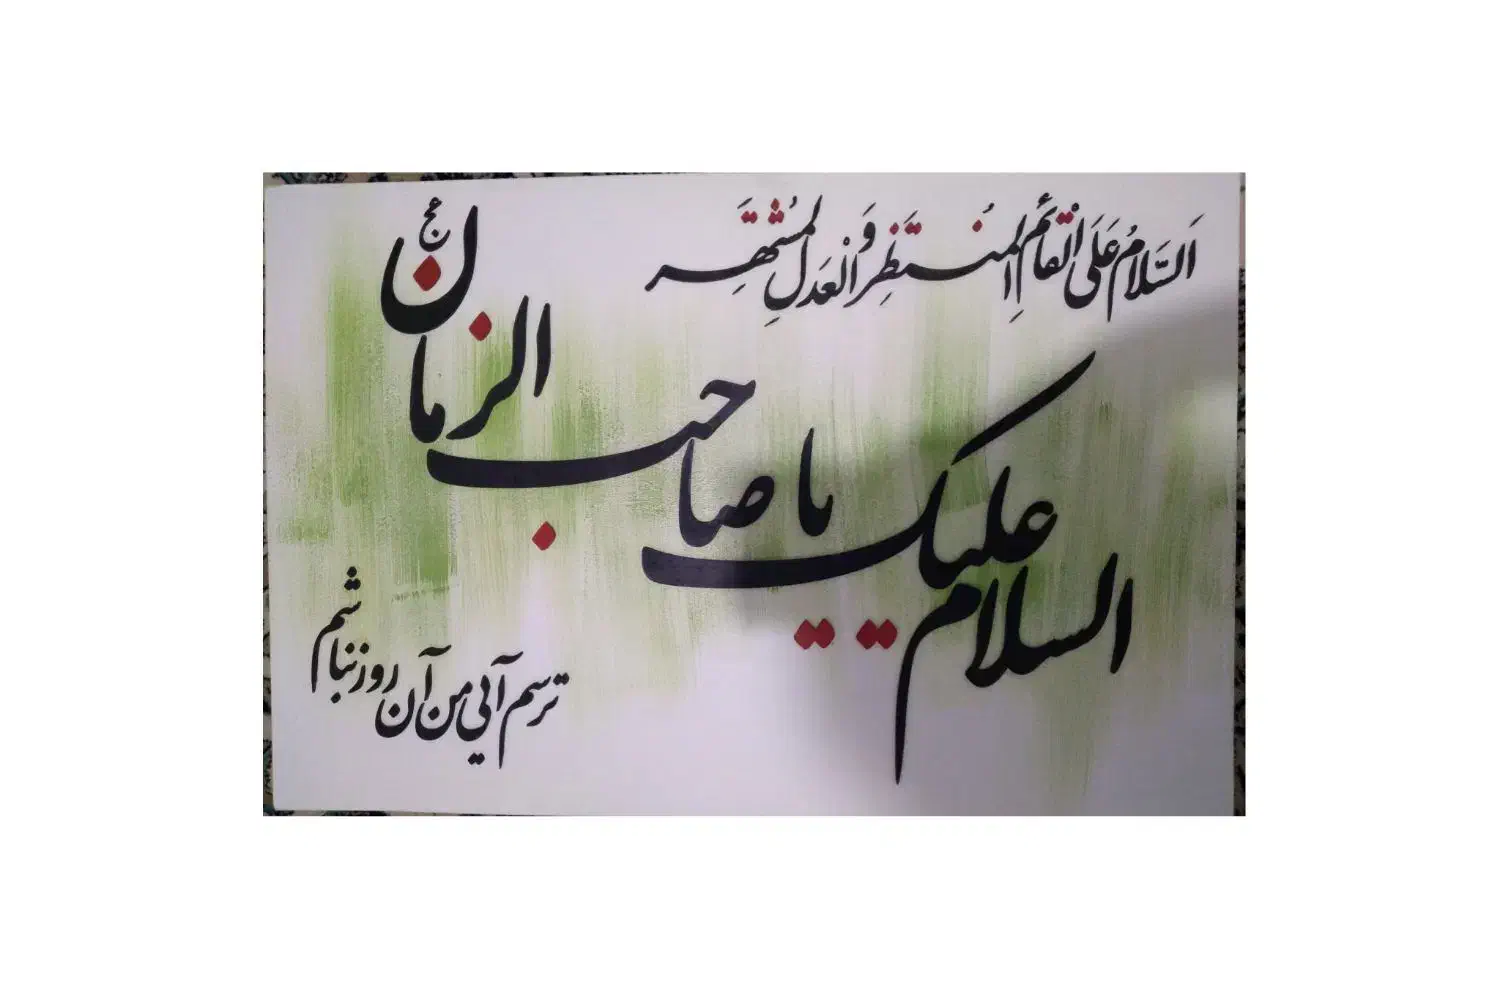 اَلسَّلامُ عَلَی الْقائِمِ الْمُنتَظَرِ وَ الْعَدَلِ الْمُشتَهَرِ
السلام علیک یا صاحب الزمان عج
ترسم آیی من آن روز نباشم